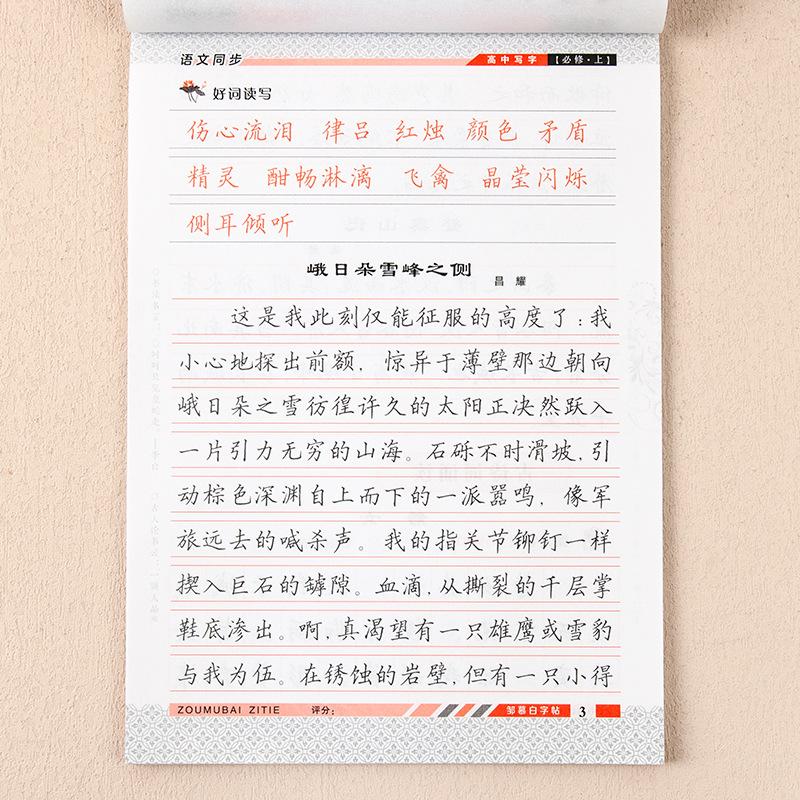 语文同步
高中写字【必修·上】
好词读写
伤心流泪 律吕 红烛 颜色 矛盾
精灵 酣畅淋漓 飞禽 晶莹闪烁
侧耳倾听
峨日朵雪峰之侧
昌耀
这是我此刻仅能征服的高度了:我
小心地探出前额，惊异于薄壁那边朝向
峨日朵之雪彷徨许久的太阳正决然跃入
一片引力无穷的山海。石砾不时滑坡，引
动棕色深渊自上而下的一派嚣鸣，像军
旅远去的喊杀声。我的指关节铆钉一样
揳入巨石的罅隙。血滴，从撕裂的千层掌
鞋底渗出。啊，真渴望有一只雄鹰或雪豹
与我为伍。在锈蚀的岩壁，但有一只小得
ZOUMUBAI ZITIE 评分: 邹慕白字帖 3